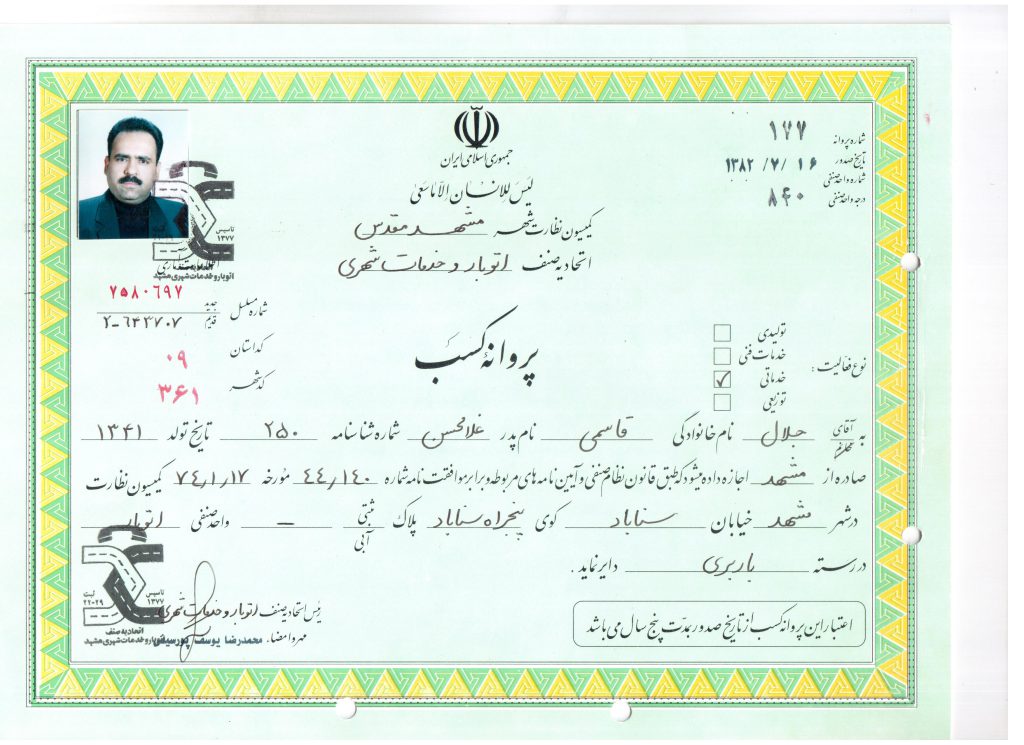 شماره پروانه ۱۷۷
تاریخ صدور ۱۳۸۲ /۷/ ۱۶
شماره واحد صنفی
درجه واحد صنفی ۸۴۰
جمهوری اسلامی ایران
لیس للانسان الا ما سعی
کمیسیون نظارت شهر مشهد مقدس
اتحادیه صنف اتوبار و خدمات شهری
تاسیس
۱۳۷۷
اتحادیه صنف
اتوبار و خدمات شهری مشهد
شماره مسلسل جدید ۷۵۸۰۶۹۷
قدیم ۲-۶۴۳۷۰۷
کد استان ۰۹
کد شهر ۳۶۱
پروانه کسب
نوع فعالیت :
تولیدی
خدمات فنی
خدماتی ✓
توزیعی
به آقای خانم جلال نام خانوادگی قاسمی نام پدر غلامحسن شماره شناسنامه ۲۵۰ تاریخ تولد ۱۳۴۱
صادره از مشهد اجازه داده میشود که طبق قانون نظام صنفی و آیین نامه های مربوطه و برابر موافقت نامه شماره ۴۴,۱۴۰ مورخه ۷۴,۱,۱۷ کمیسیون نظارت
در شهر مشهد خیابان سناباد کوی پنجراه سناباد پلاک ثبتی آبی – واحد صنفی اتوبار
در رسته باربری دایر نماید .
تاسیس
۱۳۷۷
ثبت
۲۲-۲۹
اتحادیه صنف
اتوبار و خدمات شهری مشهد
رئیس اتحادیه صنف اتوبار و خدمات شهری
مهر و امضاء . محمدرضا یوسف پور
اعتبار این پروانه کسب از تاریخ صدور بمدت پنج سال می باشد